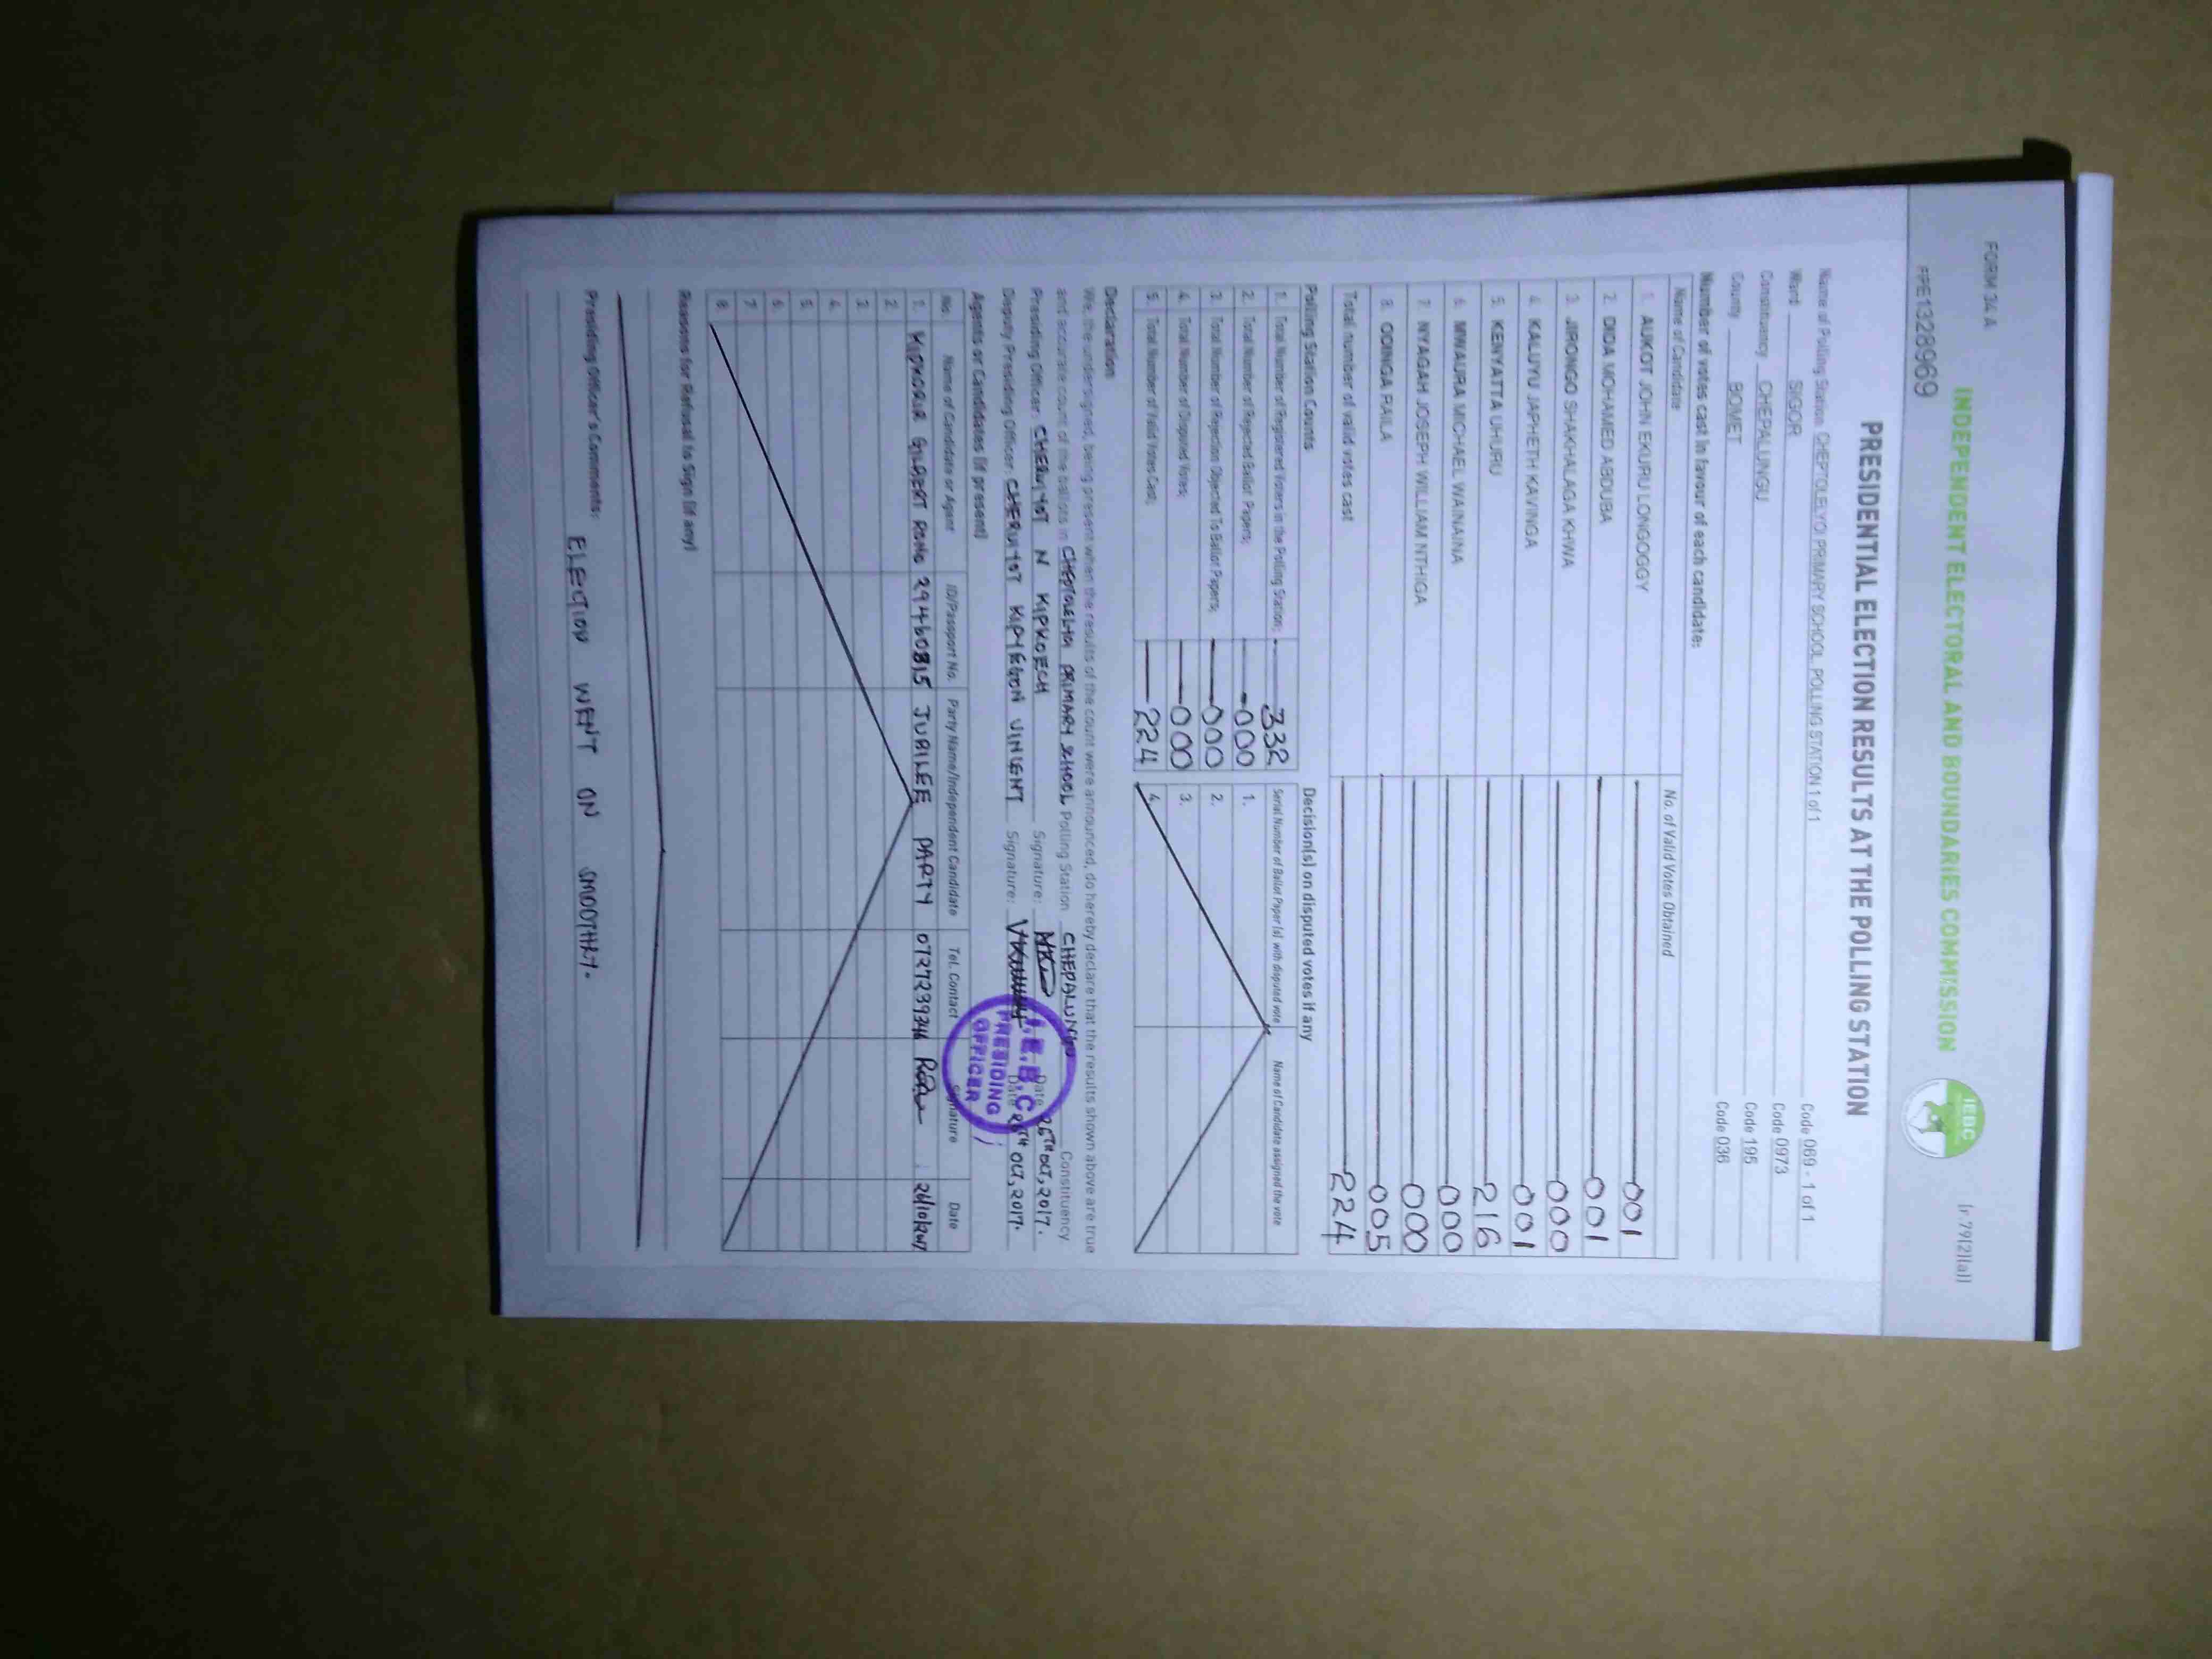 FORM 34 A
[r.79(2)(a)]
INDEPENDENT ELECTORAL AND BOUNDARIES COMMISSION
IEBC
PPE1328969
PRESIDENTIAL ELECTION RESULTS AT THE POLLING STATION
Name of Polling Station CHEPTOLELYO PRIMARY SCHOOL POLLING STATION 1 of 1 Code 069 - 1 of 1
Ward SIGOR Code 0973
Constituency CHEPALUNGU Code 195
County BOMET Code 036
Number of votes cast in favour of each candidate:
Name of Candidate No. of Valid Votes Obtained
1. AUKOT JOHN EKURU LONGOGGY 001
2. DIDA MOHAMED ABDUBA 001
3. JIRONGO SHAKHALAGA KHWA 000
4. KALUYU JAPHETH KAVINGA 001
5. KENYATTA UHURU 216
6. MWAURA MICHAEL WAINAINA 000
7. NYAGAH JOSEPH WILLIAM NTHIGA 000
8. ODINGA RAILA 005
Total number of valid votes cast 224
Polling Station Counts
1. Total Number of Registered Voters in the Polling Station; 332
2. Total Number of Rejected Ballot Papers; 000
3. Total Number of Rejection Objected To Ballot Papers; 000
4. Total Number of Disputed Votes; 000
5. Total Number of Valid Votes Cast; 224
Decision(s) on disputed votes if any
Serial Number of Ballot Paper (s) with disputed vote Name of Candidate assigned the vote
1.
2.
3.
4.
Declaration
We, the undersigned, being present when the results of the count were announced, do hereby declare that the results shown above are true
and accurate count of the ballots in CHEPTOLELYO PRIMARY SCHOOL Polling Station CHEPALUNGU Constituency
Presiding Officer: CHERUIYOT N KIPKOECH Signature: Date 26TH OCT, 2017.
Deputy Presiding Officer: CHERUIYOT KIPYEGON VINCENT Signature: Date 26TH OCT, 2017.
I.E.B.C
PRESIDING
OFFICER
Agents or Candidates (if present)
No. Name of Candidate or Agent ID/Passport No. Party Name/Independent Candidate Tel. Contact Signature Date
1. KIPKORIR GILBERT RONO 29460815 JUBILEE PARTY 0727239346 26/10/2017
2.
3.
4.
5.
6.
7.
8.
Reasons for Refusal to Sign (if any)
Presiding Officer's Comments:
ELECTION WENT ON SMOOTHLY.